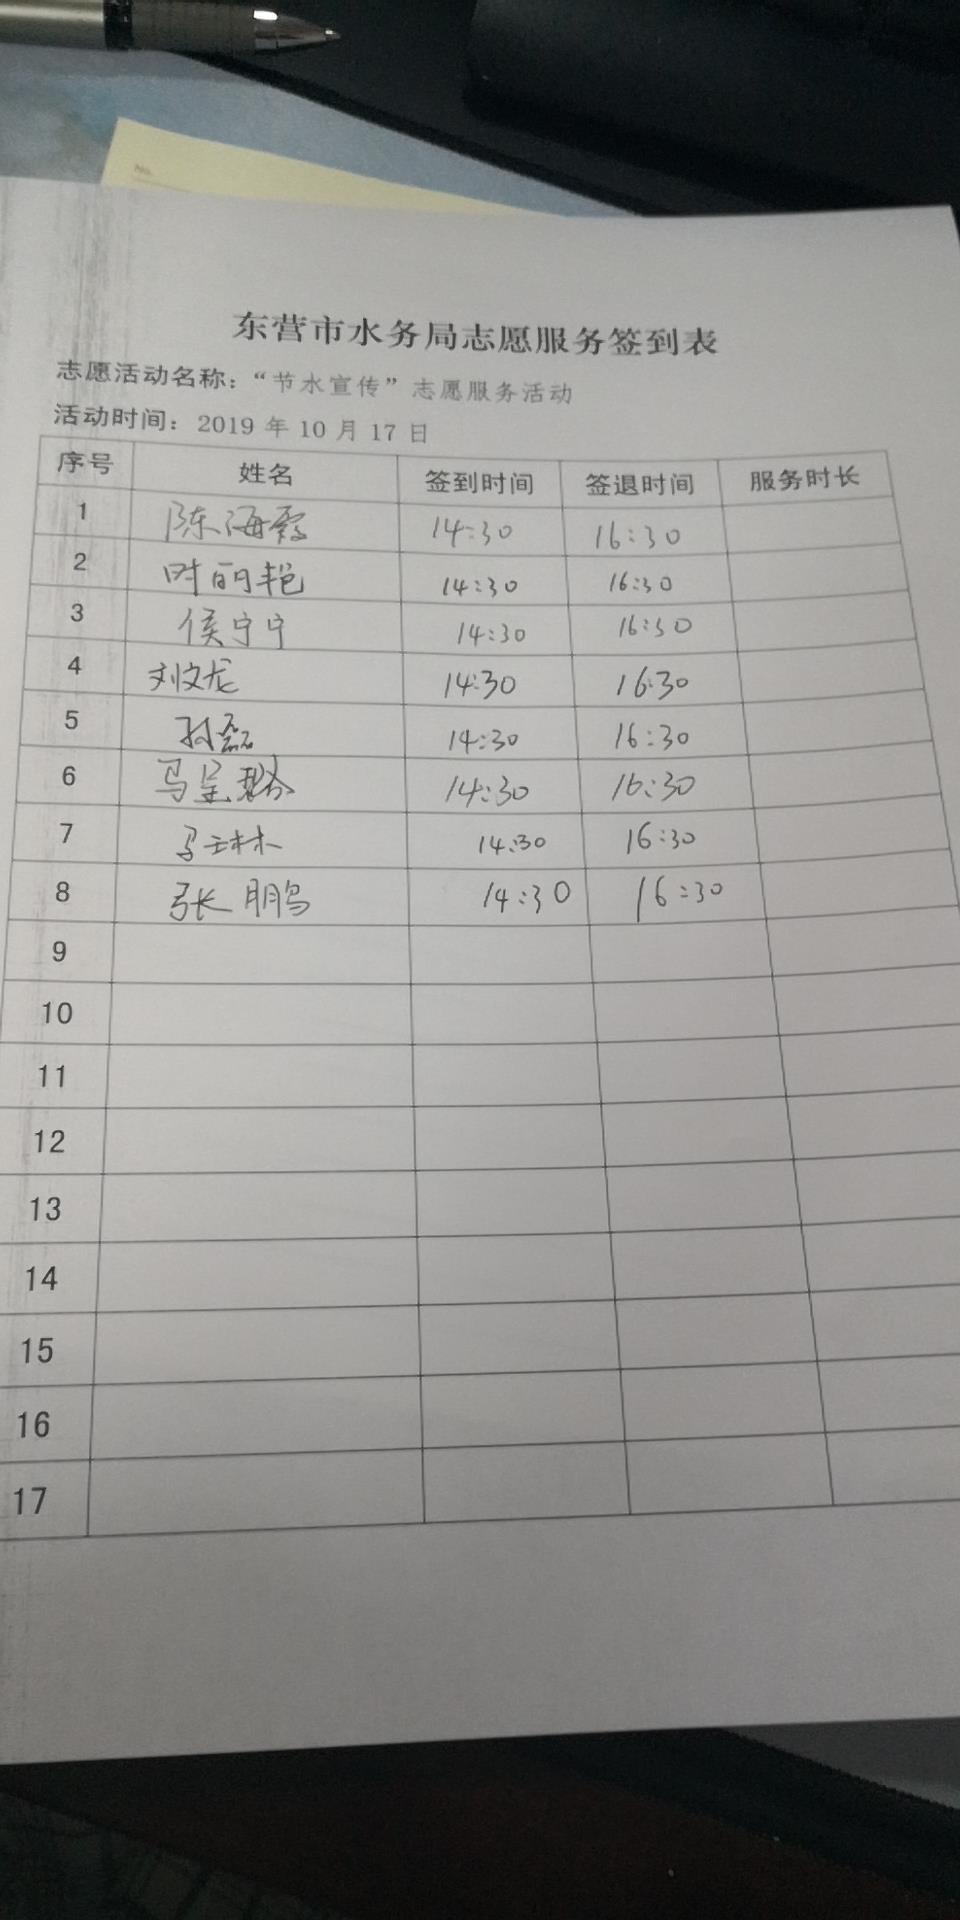 No.
东营市水务局志愿服务签到表
志愿活动名称：“节水宣传”志愿服务活动
活动时间：2019 年 10 月 17 日
序号 姓名 签到时间 签退时间 服务时长
1 陈海霞 14:30 16:30
2 时丽艳 14:30 16:30
3 侯宁宁 14:30 16:30
4 刘文龙 14:30 16:30
5 孙磊 14:30 16:30
6 马呈 14:30 16:30
7 马 14:30 16:30
8 张鹏 14:30 16:30
9
10
11
12
13
14
15
16
17